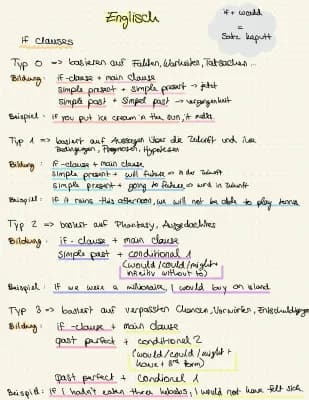 Englisch
if + would
=
Satz kaputt
if clauses
Typ 0 => basieren auf Fakten, Wahrheiten, Tatsachen...
Bildung: if-clause + main clause
simple present + simple present -> jetzt
simple past + simpel past -> vergangenheit
Beispiel: if you put ice cream in the sun, it melts.
Typ 1 => basiert auf Aussagen über die Zukunft und ihre
Bedingungen, Prognosen, Hypothesen
Bildung: if-clause + main clause
simple present + will future => in der Zukunft
simple present + going to future => wird in Zukunft
Beispiel: if it rains this afternoon, we will not be able to play tennis
Typ 2 => basiert auf Phantasy, Ausgedachtes
Bildung: if - clause + main clause
simple past + conditional 1
(would/could/might +
infinitiv without to)
Beispiel: if we were a millionaire, I would buy an island
Typ 3 => basiert auf verpassten Chancen, Vorwürfen, Entschuldigungen
Bildung: if - clause + main clause
past perfect + conditional 2
(would/could/might +
have + 3rd form)
past perfect + condional 1
Beispiel: if I hadn't eaten three kebabs, I would not have felt sick.